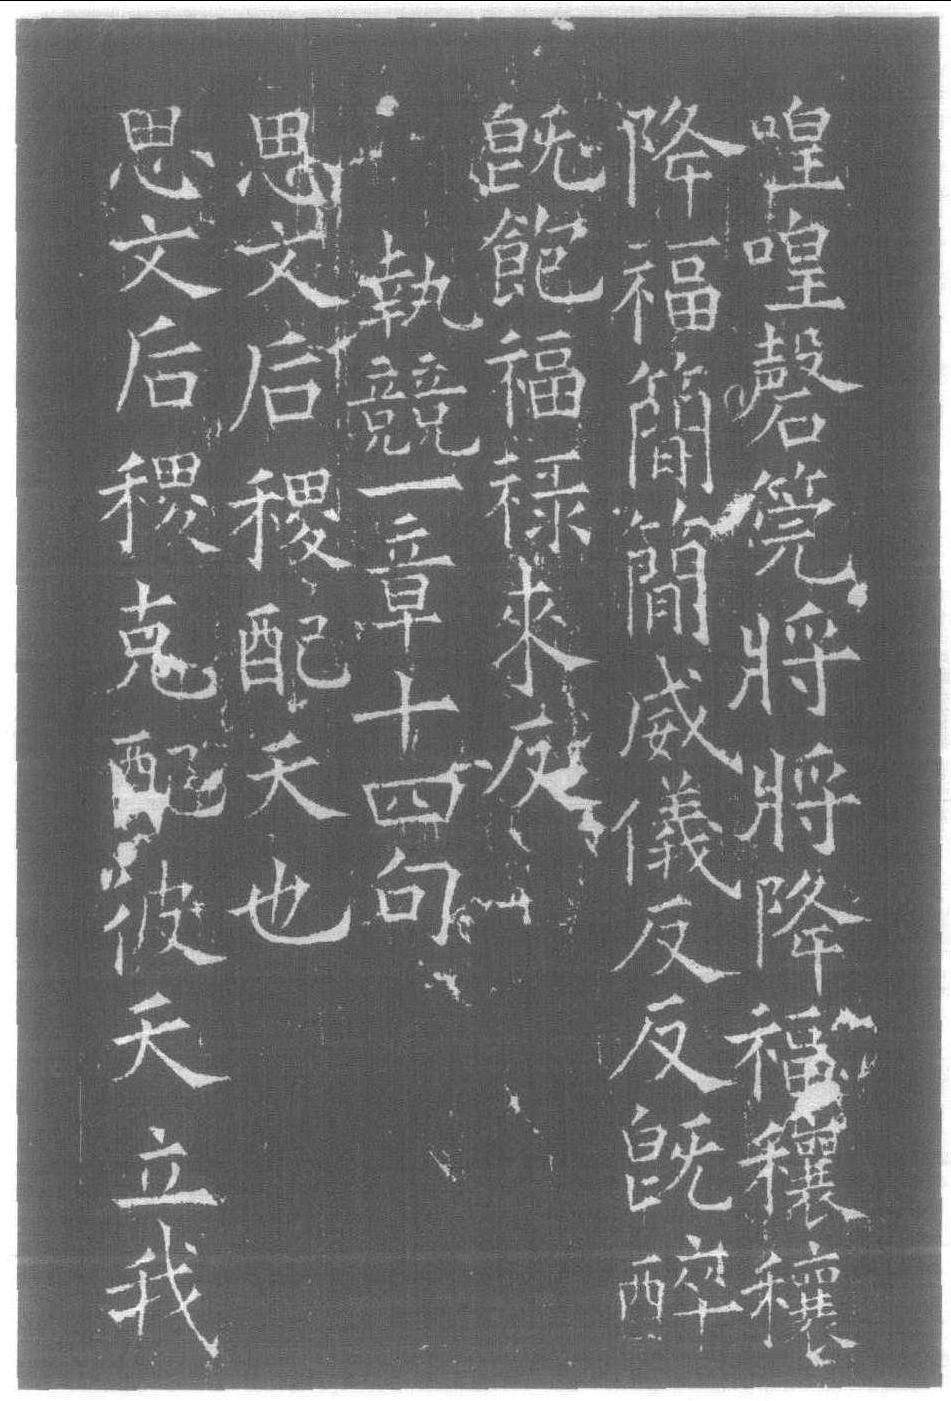 喤喤磬筦將將降福穰穰
降福簡簡威儀反反既醉
既飽福祿來反
執競一章十四句
思文后稷配天也
思文后稷克配彼天立我